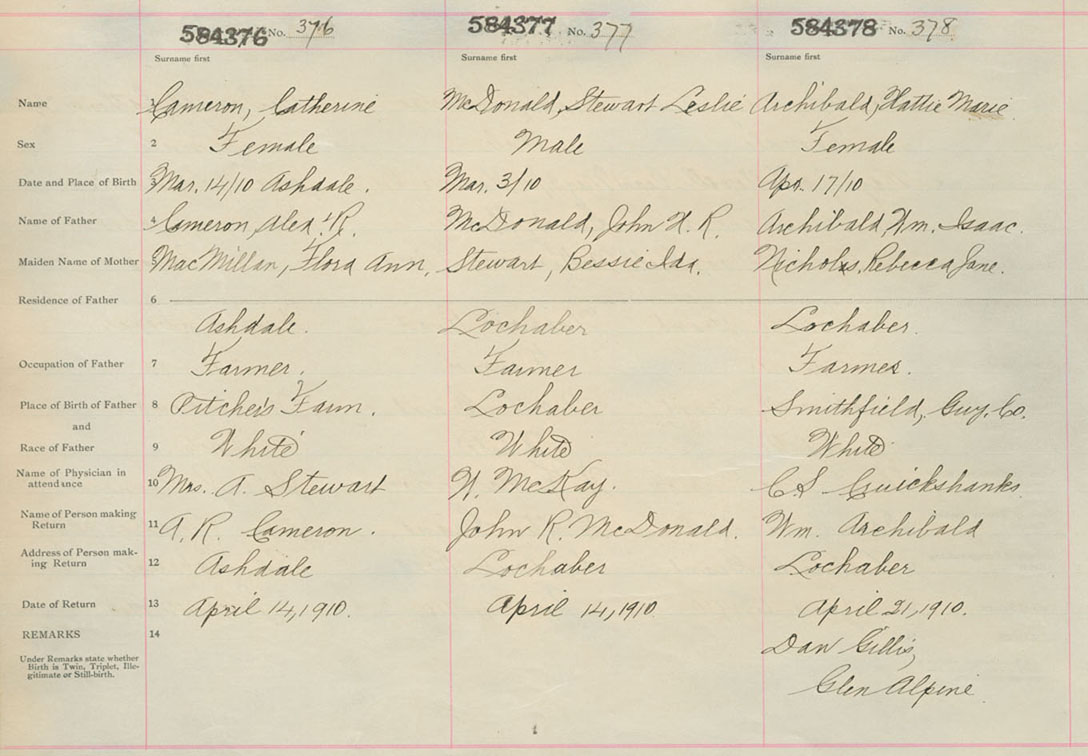 584376 No. 376 584377 No. 377 584378 No. 378
Surname first Surname first Surname first
Name 1 Cameron, Catherine McDonald, Stewart Leslie Archibald, Hattie Marie
Sex 2 Female Male Female
Date and Place of Birth 3 Mar. 14/10 Ashdale. Mar. 3/10 Apr. 17/10
Name of Father 4 Cameron, Alex. R. McDonald, John H. R. Archibald, Wm. Isaac.
Maiden Name of Mother 5 MacMillan, Flora Ann, Stewart, Bessie Ida. Nicholas, Rebecca Jane.
Residence of Father 6
Ashdale. Lochaber Lochaber.
Occupation of Father 7 Farmer. Farmer Farmer.
Place of Birth of Father 8 Pitcher's Farm. Lochaber Smithfield, Guy. Co.
and
Race of Father 9 White White White
Name of Physician in
attendance 10 Mrs. A. Stewart McKay. C S Cruickshanks
Name of Person making
Return 11 A. R. Cameron. John R. McDonald. Wm. Archibald
Address of Person mak-
ing Return 12 Ashdale Lochaber Lochaber
Date of Return 13 April 14, 1910. April 14, 1910 April 21, 1910.
REMARKS 14 Dan Gillis,
Under Remarks state whether
Birth is Twin, Triplet, Ille-
gitimate or Still-birth.
Glen Alpine